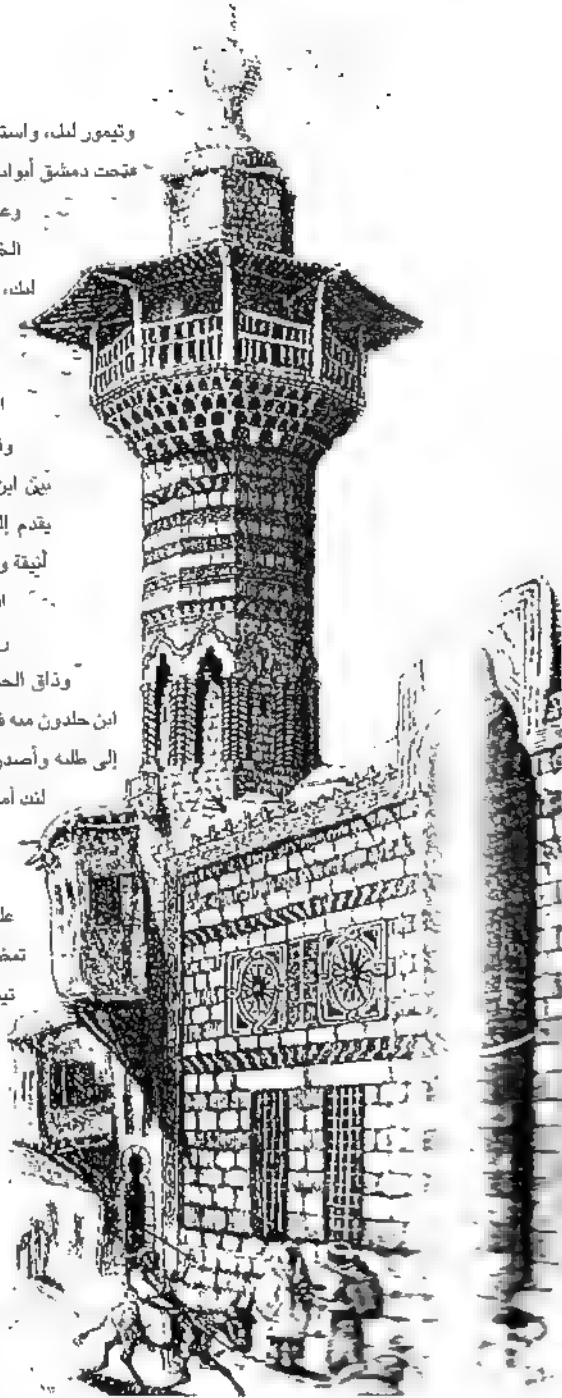 وتيمور لنك، واستـ
فتحت دمشق أبوابـ
وعـ
لنك،
بين ابن
يقدم إلـ
أنيقة و
وذاق الحـ
ابن خلدون منه فـ
إلى طلبه وأصدر
لنك أمـ
علـ
تمضـ
تيـ